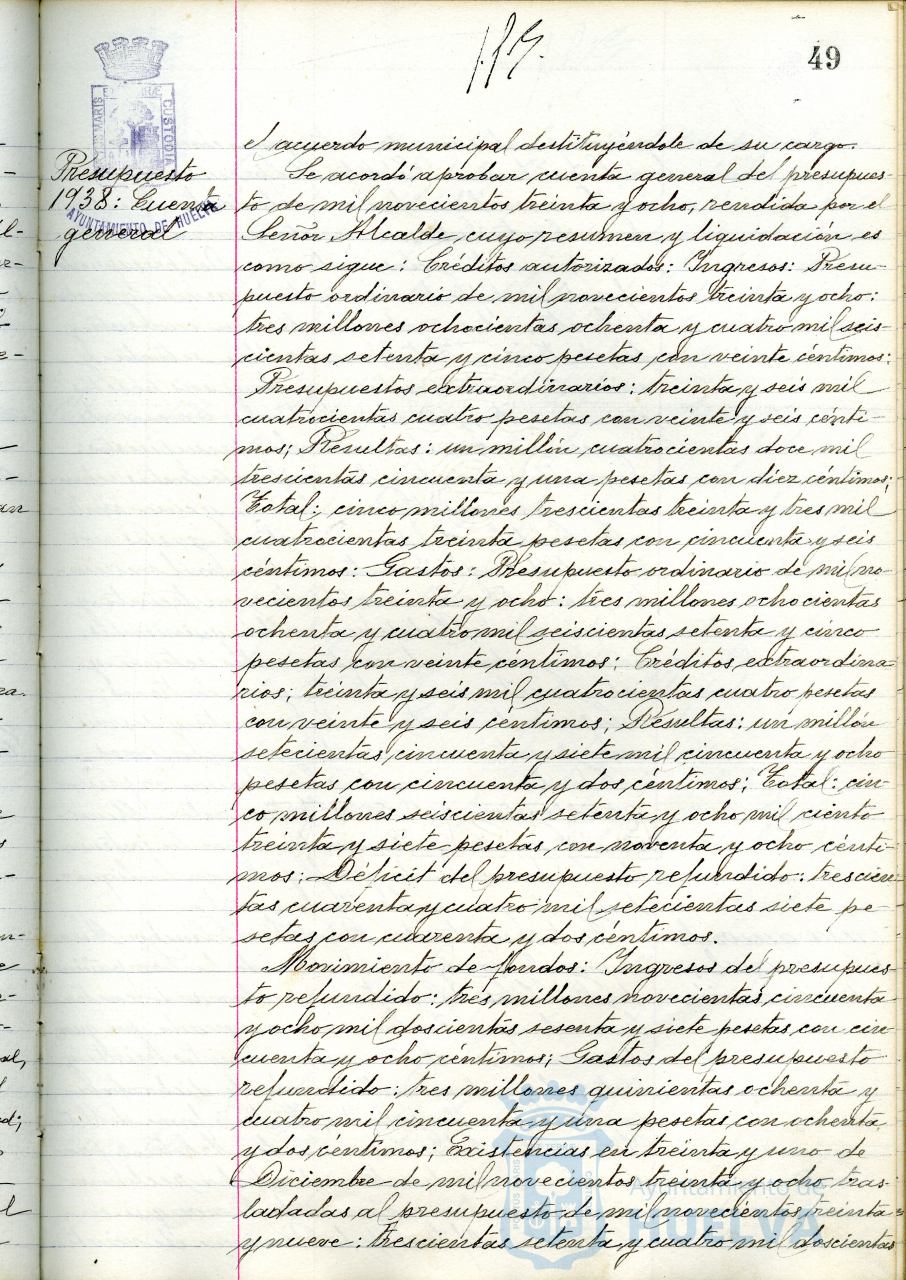 49
el acuerdo municipal destituyéndole de su cargo.
Presupuesto
1938: Cuenta
general
AYUNTAMIENTO DE HUELVA
Se acordó aprobar cuenta general del presupues-
to de mil novecientos treinta y ocho, rendida por el
Señor Alcalde cuyo resumen y liquidación es
como sigue: Créditos autorizados: Ingresos: Presu-
puesto ordinario de mil novecientos treinta y ocho:
tres millones ochocientas ochenta y cuatro mil seis-
cientas setenta y cinco pesetas con veinte céntimos:
Presupuestos extraordinarios: treinta y seis mil
cuatrocientas cuatro pesetas con veinte y seis cénti-
mos; Resultas: un millón cuatrocientas doce mil
trescientas cincuenta y una pesetas con diez céntimos;
Total: cinco millones trescientas treinta y tres mil
cuatrocientas treinta pesetas con cincuenta y seis
céntimos: Gastos: Presupuesto ordinario de mil no-
vecientos treinta y ocho: tres millones ochocientas
ochenta y cuatro mil seiscientas setenta y cinco
pesetas con veinte céntimos: Créditos extraordina-
rios; treinta y seis mil cuatrocientas cuatro pesetas
con veinte y seis céntimos; Resultas: un millón
setecientas cincuenta y siete mil cincuenta y ocho
pesetas con cincuenta y dos céntimos; Total: cin-
co millones seiscientas setenta y ocho mil ciento
treinta y siete pesetas con noventa y ocho cénti-
mos: Déficit del presupuesto refundido: trescien-
tas cuarenta y cuatro mil setecientas siete pe-
setas con cuarenta y dos céntimos.
Movimiento de fondos: Ingresos del presupues-
to refundido: tres millones novecientas cincuenta
y ocho mil doscientas sesenta y siete pesetas con cin-
cuenta y ocho céntimos; Gastos del presupuesto
refundido: tres millones quinientas ochenta y
cuatro mil cincuenta y una pesetas con ochenta
y dos céntimos; Existencias en treinta y uno de
Diciembre de mil novecientos treinta y ocho tras-
ladadas al presupuesto de mil novecientos treinta
y nueve: trescientas setenta y cuatro mil doscientas
Ayuntamiento de
HUELVA